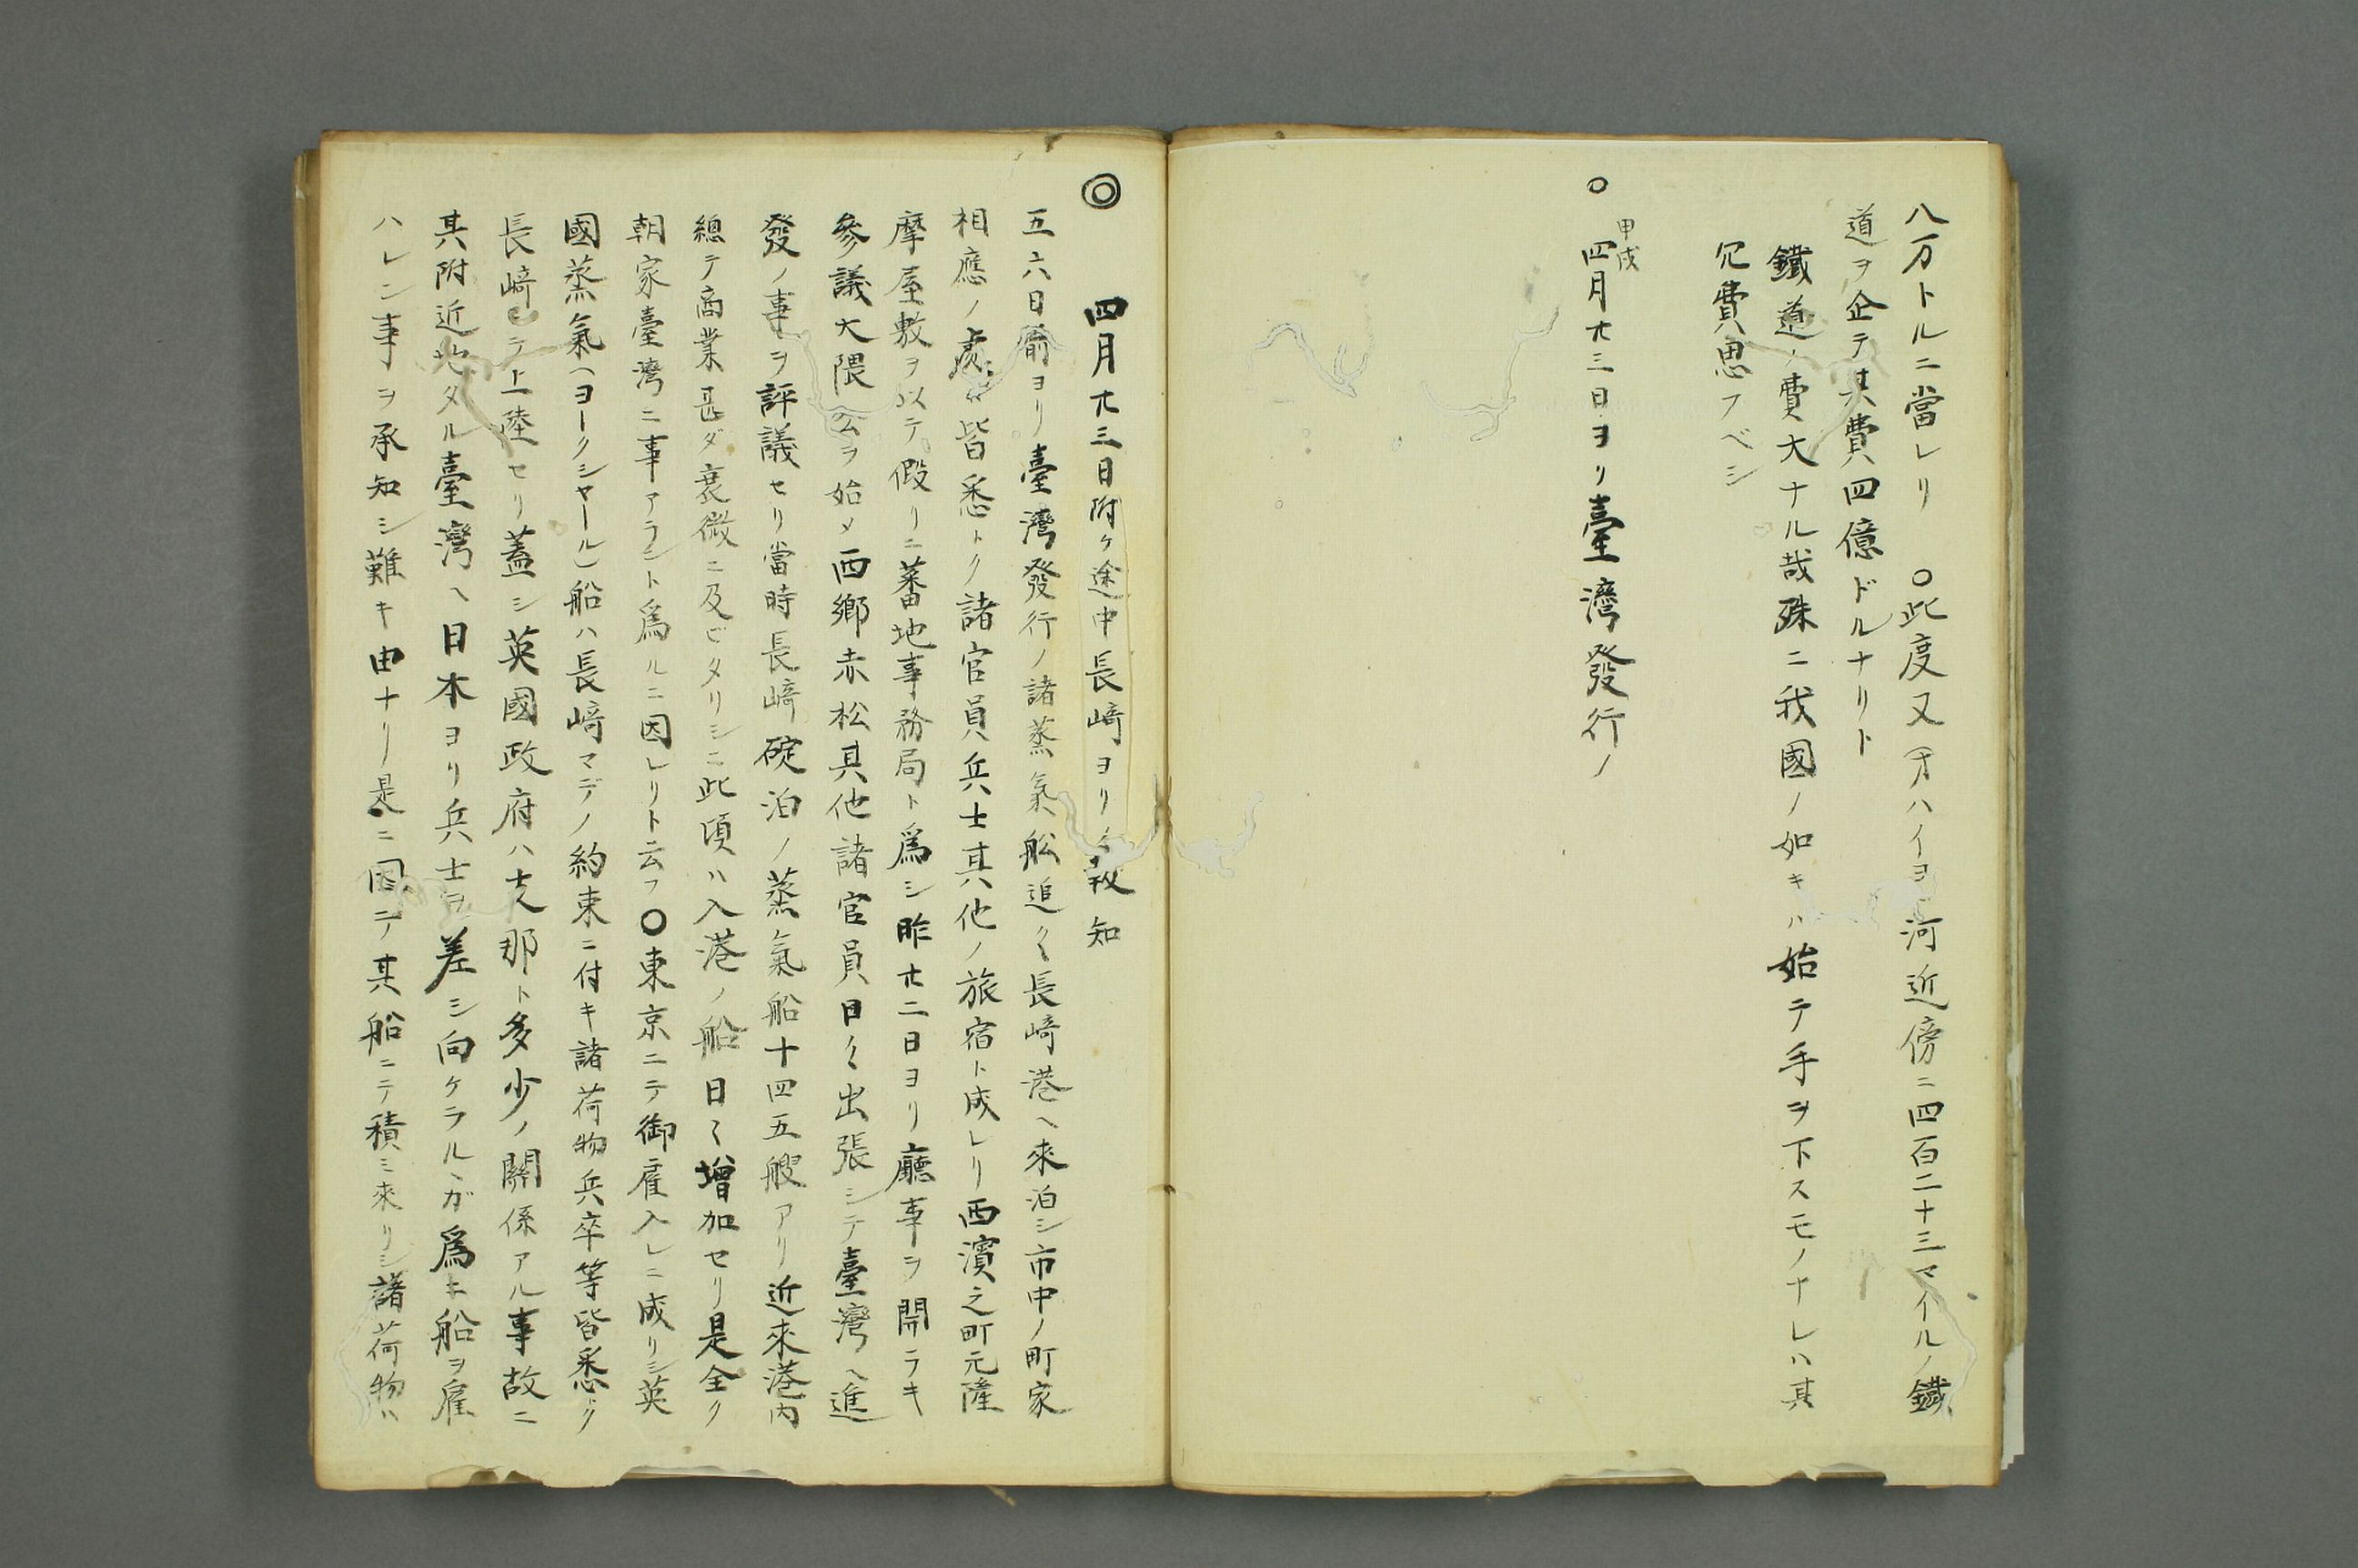 八万トルニ當レリ 〇此度又オハイヨ河近傍ニ四百二十三マイルノ鐵
道ヲ企テ其費四億ドルナリト
鐵道ノ費大ナル哉殊ニ我國ノ如キハ始テ手ヲ下スモノナレハ其
冗費思フベシ
〇 甲戌
四月廿三日ヨリ臺灣發行ノ
◎ 四月廿三日附ケ途中長﨑ヨリノ報知
五六日前ヨリ臺灣發行ノ諸蒸氣舩追〻長﨑港ヘ來泊シ市中ノ町家
相應ノ處ハ皆悉トク諸官員兵士其他ノ旅宿ト成レリ西濱之町元薩
摩屋敷ヲ以テ假リニ蕃地事務局ト爲シ昨廿二日ヨリ廳事ヲ開ラキ
參議大隈公ヲ始メ西鄉赤松其他諸官員日〻出張シテ臺灣ヘ進
發ノ事ヲ評議セリ當時長﨑碇泊ノ蒸氣船十四五艘アリ近來港内
總テ商業甚ダ衰微ニ及ビタリシニ此頃ハ入港ノ船日〻增加セリ是全ク
朝家臺灣ニ事アラント爲ルニ因レリト云フ〇東京ニテ御雇入レニ成リシ英
國蒸氣(ヨークシヤール)船ハ長﨑マデノ約束ニ付キ諸荷物兵卒等皆悉トク
長﨑ニテ上陸セリ蓋シ英國政府ハ支那ト多少ノ關係アル事故ニ
其附近地タル臺灣ヘ日本ヨリ兵士ヲ差シ向ケラルヽガ爲ニ船ヲ雇
ハレン事ヲ承知シ難キ由ナリ是ニ因テ其船ニテ積ミ來リシ諸荷物ハ